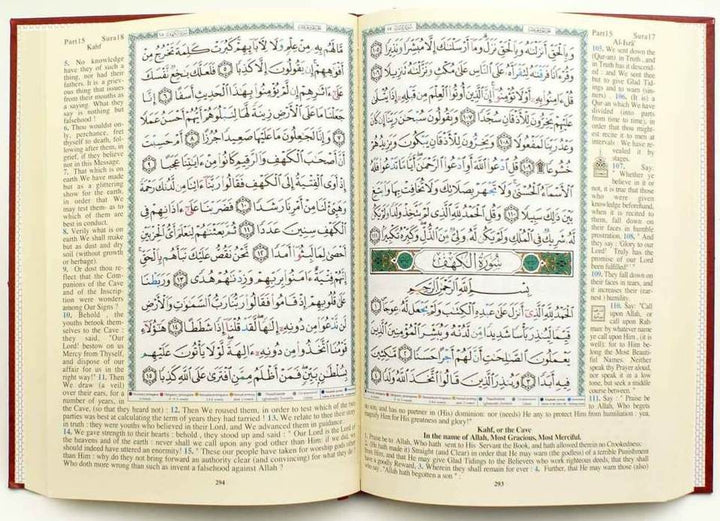 Part15 Sura17
Al-Isrâ'
وَبِالْحَقِّ أَنزَلْنَٰهُ وَبِالْحَقِّ نَزَلَ وَمَا أَرْسَلْنَٰكَ إِلَّا مُبَشِّرًا وَنَذِيرًا ١٠٥
وَقُرْءَانًا فَرَقْنَٰهُ لِتَقْرَأَهُ عَلَى النَّاسِ عَلَىٰ مُكْثٍ وَنَزَّلْنَٰهُ تَنزِيلًا ١٠٦
قُلْ ءَامِنُوا بِهِ أَوْ لَا تُؤْمِنُوا إِنَّ الَّذِينَ أُوتُوا الْعِلْمَ مِن قَبْلِهِ إِذَا يُتْلَىٰ
عَلَيْهِمْ يَخِرُّونَ لِلْأَذْقَانِ سُجَّدًا ١٠٧ وَيَقُولُونَ سُبْحَٰنَ رَبِّنَا إِن كَانَ
وَعْدُ رَبِّنَا لَمَفْعُولًا ١٠٨ وَيَخِرُّونَ لِلْأَذْقَانِ يَبْكُونَ وَيَزِيدُهُمْ
خُشُوعًا ١٠٩ قُلِ ادْعُوا اللَّهَ أَوِ ادْعُوا الرَّحْمَٰنَ أَيًّا مَّا تَدْعُوا فَلَهُ
الْأَسْمَاءُ الْحُسْنَىٰ وَلَا تَجْهَرْ بِصَلَاتِكَ وَلَا تُخَافِتْ بِهَا وَابْتَغِ
بَيْنَ ذَٰلِكَ سَبِيلًا ١١٠ وَقُلِ الْحَمْدُ لِلَّهِ الَّذِي لَمْ يَتَّخِذْ وَلَدًا وَلَمْ يَكُن لَّهُ
شَرِيكٌ فِي الْمُلْكِ وَلَمْ يَكُن لَّهُ وَلِيٌّ مِّنَ الذُّلِّ وَكَبِّرْهُ تَكْبِيرًا ١١١
سُورَةُ الْكَهْفِ
بِسْمِ اللَّهِ الرَّحْمَٰنِ الرَّحِيمِ
الْحَمْدُ لِلَّهِ الَّذِي أَنزَلَ عَلَىٰ عَبْدِهِ الْكِتَٰبَ وَلَمْ يَجْعَل لَّهُ عِوَجًا ١
قَيِّمًا لِّيُنذِرَ بَأْسًا شَدِيدًا مِّن لَّدُنْهُ وَيُبَشِّرَ الْمُؤْمِنِينَ الَّذِينَ
يَعْمَلُونَ الصَّٰلِحَٰتِ أَنَّ لَهُمْ أَجْرًا حَسَنًا ٢ مَّٰكِثِينَ
فِيهِ أَبَدًا ٣ وَيُنذِرَ الَّذِينَ قَالُوا اتَّخَذَ اللَّهُ وَلَدًا ٤
105. We sent down the
(Qur-ân) in Truth , and
in Truth has it descend-
ed : and We sent thee
but to give Glad Tidings
and to warn (sinn-
ers). 106. (It is) a
Qur-ân which We have
divided (into parts
from time to time), in
order that thou might-
est recite it to men at
intervals: We have
revealed it by
stages.
107. Say:
Whether ye
believe in it or
not, it is true that those
who were given
knowledge beforehand,
when it is recited to
them, fall down on
their faces in humble
prostration, 108. " And
they say : 'Glory to our
Lord! Truly has the
promise of our Lord
been fulfilled!'
109. They fall down on
their faces in tears, and
it increases their (ear-
nest) humility.
110. Say: "Call
upon Allah, or
call upon Rah-
mân by whatever name
ye call upon Him , (it is
well): for to Him be-
long the Most Beauti-
ful Names. Neither
speak thy Prayer aloud,
nor speak it in a low
tone, but seek a middle
course between."
111. Say : " Praise be
to Allah, Who begets
no son, and has no partner in (His) dominion: nor (needs) He any to protect Him from humiliation : yea,
magnify Him for His greatness and glory!"
Kahf, or the Cave
In the name of Allah, Most Gracious, Most Merciful.
1. Praise be to Allah, Who hath sent to His Servant the Book, and hath allowed therein no Crookedness:
2. (He hath made it) Straight (and Clear) in order that He may warn (the godless) of a terrible Punishment
from Him, and that He may give Glad Tidings to the Believers who work righteous deeds, that they shall
have a goodly Reward, 3. Wherein they shall remain for ever : 4. Further, that He may warn those (also)
who say , "Allah hath begotten a son" :
293
Part15 Sura18
Kahf
مَّا لَهُم بِهِ مِنْ عِلْمٍ وَلَا لِآبَائِهِمْ كَبُرَتْ كَلِمَةً تَخْرُجُ مِنْ
أَفْوَٰهِهِمْ إِن يَقُولُونَ إِلَّا كَذِبًا ٥ فَلَعَلَّكَ بَٰخِعٌ نَّفْسَكَ
عَلَىٰ ءَاثَٰرِهِمْ إِن لَّمْ يُؤْمِنُوا بِهَٰذَا الْحَدِيثِ أَسَفًا ٦ إِنَّا
جَعَلْنَا مَا عَلَى الْأَرْضِ زِينَةً لَّهَا لِنَبْلُوَهُمْ أَيُّهُمْ أَحْسَنُ عَمَلًا
٧ وَإِنَّا لَجَٰعِلُونَ مَا عَلَيْهَا صَعِيدًا جُرُزًا ٨ أَمْ حَسِبْتَ
أَنَّ أَصْحَٰبَ الْكَهْفِ وَالرَّقِيمِ كَانُوا مِنْ ءَايَٰتِنَا عَجَبًا ٩
إِذْ أَوَى الْفِتْيَةُ إِلَى الْكَهْفِ فَقَالُوا رَبَّنَا ءَاتِنَا مِن لَّدُنكَ رَحْمَةً
وَهَيِّئْ لَنَا مِنْ أَمْرِنَا رَشَدًا ١٠ فَضَرَبْنَا عَلَىٰ ءَاذَانِهِمْ فِي
الْكَهْفِ سِنِينَ عَدَدًا ١١ ثُمَّ بَعَثْنَٰهُمْ لِنَعْلَمَ أَيُّ الْحِزْبَيْنِ
أَحْصَىٰ لِمَا لَبِثُوا أَمَدًا ١٢ نَّحْنُ نَقُصُّ عَلَيْكَ نَبَأَهُم بِالْحَقِّ
إِنَّهُمْ فِتْيَةٌ ءَامَنُوا بِرَبِّهِمْ وَزِدْنَٰهُمْ هُدًى ١٣ وَرَبَطْنَا
عَلَىٰ قُلُوبِهِمْ إِذْ قَامُوا فَقَالُوا رَبُّنَا رَبُّ السَّمَٰوَٰتِ وَالْأَرْضِ
لَن نَّدْعُوَا مِن دُونِهِ إِلَٰهًا لَّقَدْ قُلْنَا إِذًا شَطَطًا ١٤ هَٰؤُلَاءِ
قَوْمُنَا اتَّخَذُوا مِن دُونِهِ ءَالِهَةً لَّوْلَا يَأْتُونَ عَلَيْهِم
بِسُلْطَٰنٍ بَيِّنٍ فَمَنْ أَظْلَمُ مِمَّنِ افْتَرَىٰ عَلَى اللَّهِ كَذِبًا ١٥
5. No knowledge
have they of such a
thing, nor had their
fathers. It is a griev-
ous thing that issues
from their mouths as
a saying. What they
say is nothing but
falsehood !
6. Thou wouldst on-
ly, perchance, fret
thyself to death,
following after them, in
grief, if they believe
not in this Message.
7. That which is on
earth We have made
but as a glittering
show for the earth,
in order that We
may test them- as to
which of them are
best in conduct.
8. Verily what is on
earth We shall make
but as dust and dry
soil (without growth
or herbage).
9. Or dost thou re-
flect that the Com-
panions of the Cave
and of the Inscription
were wonders
among Our Signs ?
10. Behold , the
youths betook them-
selves to the Cave :
they said, "Our
Lord! bestow on us
Mercy from Thyself,
and dispose of our
affair for us in the
right way!" 11. Then
We draw (a veil)
over their ears, for a
number of years, in
the Cave, (so that they heard not) : 12. Then We roused them, in order to test which of the two
parties was best at calculating the term of years they had tarried ! 13. We relate to thee their story
in truth : they were youths who believed in their Lord, and We advanced them in guidance:
14. We gave strength to their hearts : behold, they stood up and said : " Our Lord is the Lord of
the heavens and of the earth : never shall we call upon any god other than Him: if we did, we
should indeed have uttered an enormity! 15. " These our people have taken for worship gods other
than Him : why do they not bring forward an authority clear (and convincing) for what they do ?
Who doth more wrong than such as invent a falsehood against Allah ?
294